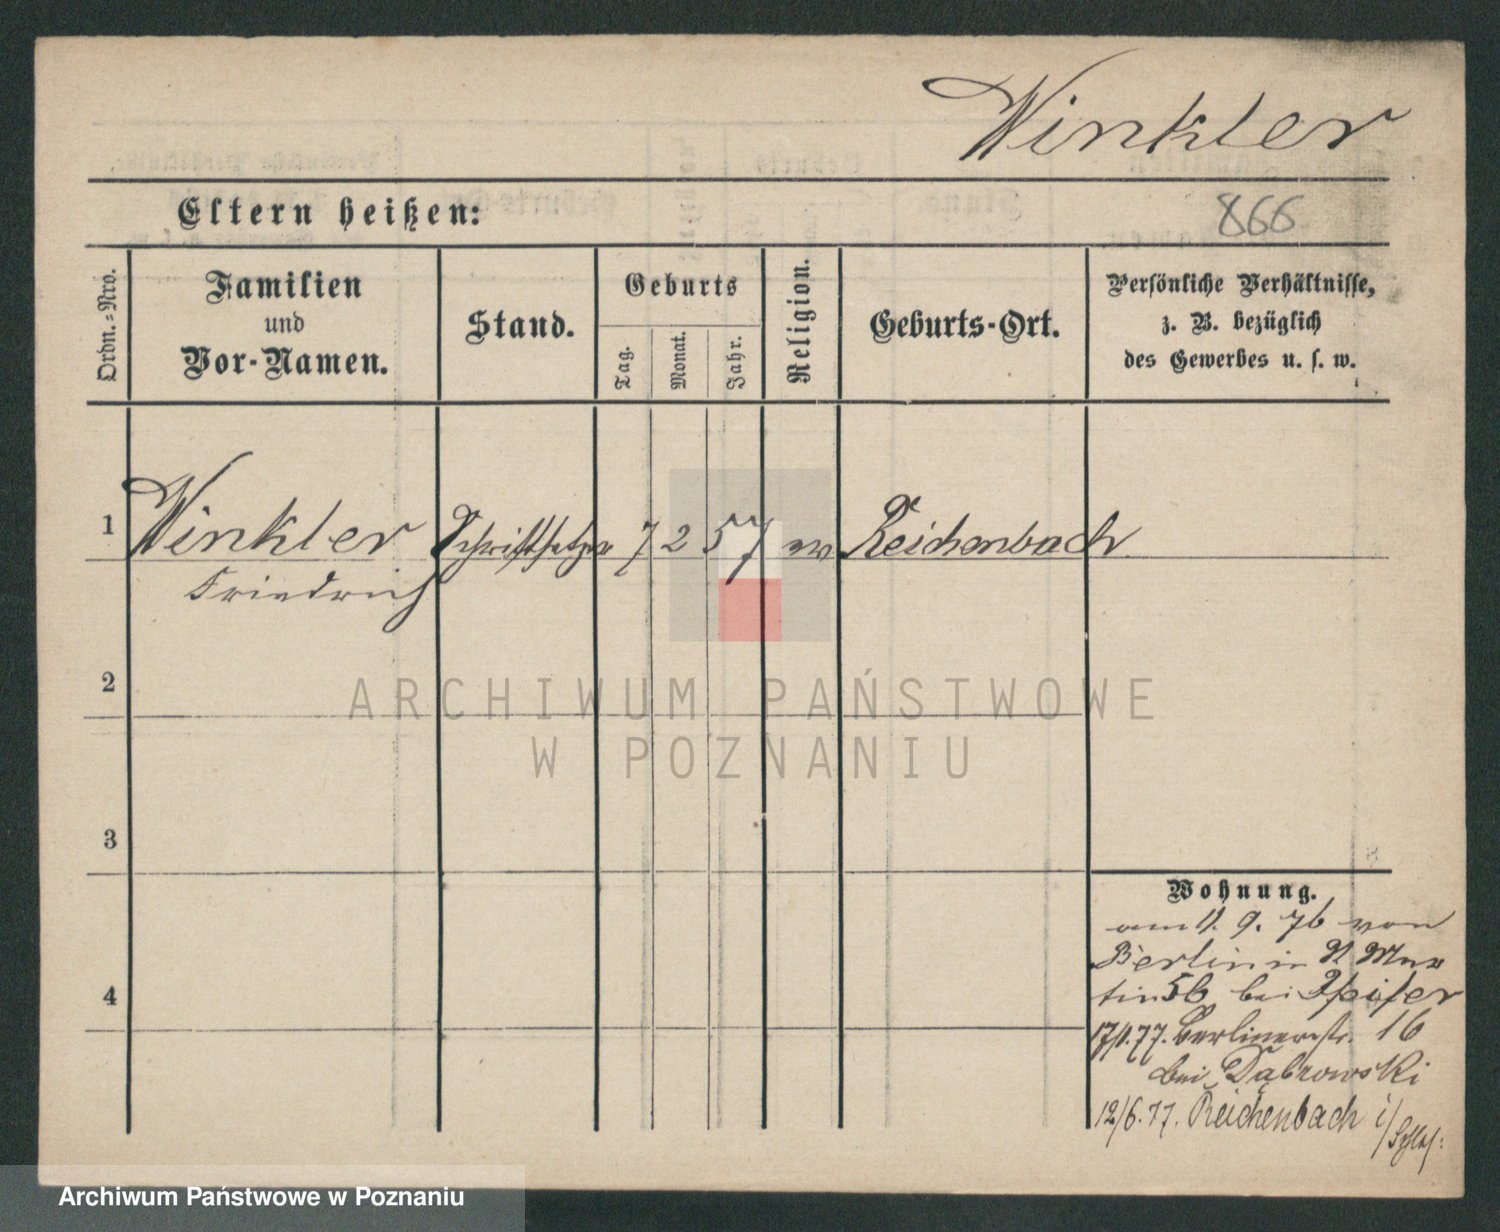 Winkler
Eltern heißen:
866
Ordn.-Nro.
Familien
und
Vor-Namen.
Stand.
Geburts
Tag.
Monat.
Jahr.
Religion.
Geburts-Ort.
Persönliche Verhältnisse,
z. B. bezüglich
des Gewerbes u. s. w.
1 Winkler Schriftsetzer 7 2 57 ev Reichenbach
Friedrich
2
3
4
ARCHIWUM PAŃSTWOWE
W POZNANIU
Wohnung.
am 11. 9. 76 von
Berlin in St Mar
tin 56 bei Pfeifer
17/1.77. Berlinerstr. 16
bei Dąbrowski
12/6.77. Reichenbach i/Schles:
Archiwum Państwowe w Poznaniu